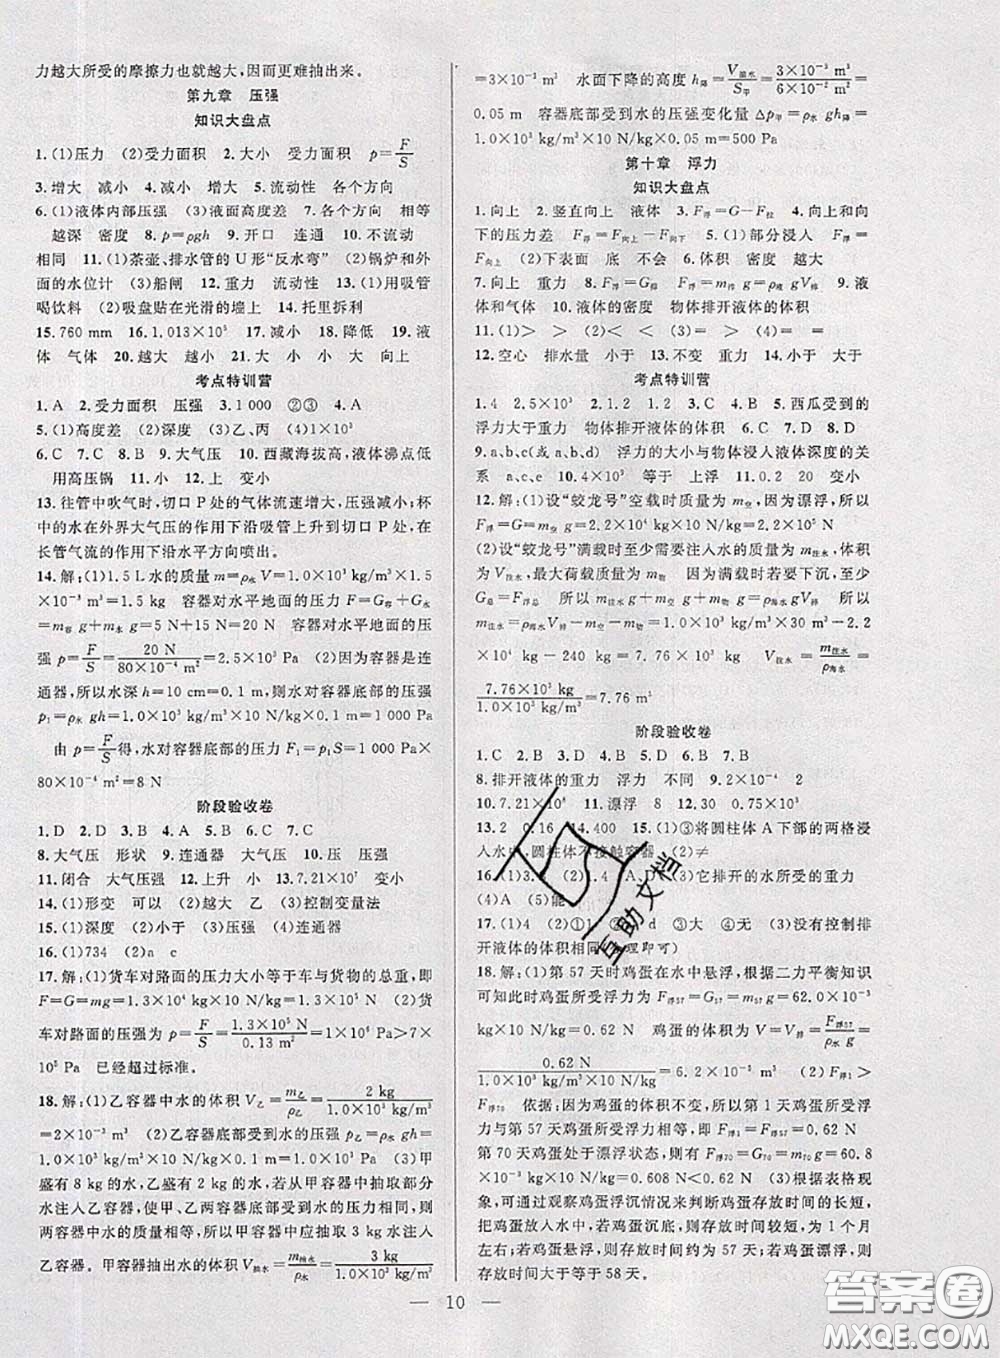 力越大所受的摩擦力也就越大，因而更难抽出来。
第九章　压强
知识大盘点
1.(1)压力　(2)受力面积　2.大小　受力面积　p=F/S
3.增大　减小　4.减小　增大　5.流动性　各个方向
6.(1)液体内部压强　(3)液面高度差　7.各个方向　相等
越深　密度　8.p=ρgh　9.开口　连通　10.不流动
相同　11.(1)茶壶、排水管的U形“反水弯”　(2)锅炉和外
面的水位计　(3)船闸　12.重力　流动性　13.(1)用吸管
喝饮料　(2)吸盘贴在光滑的墙上　14.托里拆利
15.760 mm　16.1.013×10⁵　17.减小　18.降低　19.液
体　气体　20.越大　越小　21.大　小　大　向上
考点特训营
1.A　2.受力面积　压强　3.1 000　②③　4.A
5.(1)高度差　(2)深度　(3)乙、丙　(4)1×10³
6.C　7.C　8.B　9.大气压　10.西藏海拔高，液体沸点低
用高压锅　11.小　12.上　变小
13.往管中吹气时，切口P处的气体流速增大，压强减小；杯
中的水在外界大气压的作用下沿吸管上升到切口P处，在
长管气流的作用下沿水平方向喷出。
14.解：(1)1.5 L水的质量m=ρ水V=1.0×10³ kg/m³×1.5×
10⁻³ m³=1.5 kg　容器对水平地面的压力F=G容+G水
=m容g+m水g=5 N+15 N=20 N　容器对水平地面的压
强p=F/S=20 N/80×10⁻⁴ m²=2.5×10³ Pa　(2)因为容器是连
通器，所以水深h=10 cm=0.1 m，则水对容器底部的压强
p₁=ρ水gh=1.0×10³ kg/m³×10 N/kg×0.1 m=1 000 Pa
由p=F/S得，水对容器底部的压力F₁=p₁S=1 000 Pa×
80×10⁻⁴ m²=8 N
阶段验收卷
1.D　2.D　3.A　4.A　5.C　6.C　7.C
8.大气压　形状　9.连通器　10.压　压强
11.闭合　大气压强　12.上升　小　13.7×10⁵　变小
14.(1)形变　(2)越大　乙　(3)控制变量法
15.(1)深度　(2)小于　(3)压强　(4)连通器
16.(1)734　(2)a　c
17.解：(1)货车对路面的压力大小等于车与货物的总重，即
F=G=mg=1.3×10⁴ kg×10 N/kg=1.3×10⁵ N　(2)货
车对路面的压强p=F/S=1.3×10⁵ N/0.13 m²=1×10⁶ Pa>7×
10⁵ Pa　已经超过标准。
18.解：(1)乙容器中水的体积V乙=m乙/ρ乙=2 kg/1.0×10³ kg/m³
=2×10⁻³ m³　(2)乙容器底部受到水的压强p乙=ρ水gh=
1.0×10³ kg/m³×10 N/kg×0.1 m=1 000 Pa　(3)甲容器
盛有8 kg的水，乙盛有2 kg的水，若从甲容器中抽取部分
水注入乙容器，使甲、乙两容器底部受到水的压力相同，则
两容器中水的质量相等，所以甲容器中应抽取3 kg水注入
乙容器。甲容器抽出水的体积V抽水=m抽水/ρ水=3 kg/1.0×10³ kg/m³
=3×10⁻³ m³　水面下降的高度h降=V抽水/S甲=3×10⁻³ m³/6×10⁻² m²=
0.05 m　容器底部受到水的压强变化量Δp甲=ρ水gh降=
1.0×10³ kg/m³×10 N/kg×0.05 m=500 Pa
第十章　浮力
知识大盘点
1.向上　2.竖直向上　液体　3.F浮=G-F拉　4.向上和向
下的压力差　F浮=F向上-F向下　5.(1)部分浸入　F浮=
F向上　(2)下表面　底　不会　6.体积　密度　越大
7.向上　重力　8.F浮=G排　F浮=m排g=ρ液gV排　9.液
体和气体　10.液体的密度　物体排开液体的体积
11.(1)>　>　(2)<　<　(3)=　=　(4)=　=
12.空心　排水量　小于　13.不变　重力　14.小于　大于
考点特训营
1.4　2.5×10³　2.1.2　1.2　3.C　4.B　5.西瓜受到的
浮力大于重力　物体排开液体的体积　6.C　7.D　8.D
9.a、b、c(或a、b、d)　浮力的大小与物体浸入液体深度的关
系　a、c、e　10.4×10³　等于　上浮　11.0.2　20　变小
12.解：(1)设“蛟龙号”空载时质量为m空，因为漂浮，所以
F浮=G=m空g=2.2×10⁴ kg×10 N/kg=2.2×10⁵ N
(2)设“蛟龙号”满载时至少需要注入水的质量为m注水，体
积为V注水，最大荷载质量为m物　因为满载时若要下沉，至少
G总=F浮总　所以m注水g+m空g+m物g=ρ海水gV排
m注水=ρ海水V排-m空-m物=1.0×10³ kg/m³×30 m³-2.2
×10⁴ kg-240 kg=7.76×10³ kg　V注水=m注水/ρ海水=
7.76×10³ kg/1.0×10³ kg/m³=7.76 m³
阶段验收卷
1.C　2.B　3.B　4.B　5.D　6.B　7.B
8.排开液体的重力　浮力　不同　9.2×10⁻⁴　2
10.7.21×10⁶　11.漂浮　8　12.30　0.75×10³
13.2　0.16　14.400　15.(1)③将圆柱体A下部的两格浸
入水中，圆柱体不接触容器　(2)≠
(4)A　(5)能
17.(1)4　(2)①1　②d　③大　④无　(3)没有控制排
18.解：(1)第57天时鸡蛋在水中悬浮，根据二力平衡知识
可知此时鸡蛋所受浮力为F浮57=G57=m57g=62.0×10⁻³
kg×10 N/kg=0.62 N　鸡蛋的体积为V=V排=F浮57/ρ水g=
0.62 N/1.0×10³ kg/m³×10 N/kg=6.2×10⁻⁵ m³　(2)F浮1>
F浮70　依据：因为鸡蛋的体积不变，所以第1天鸡蛋所受浮力
与第57天鸡蛋所受浮力相等，即F浮1=F浮57=0.62 N
第70天鸡蛋处于漂浮状态；则有F浮70=G70=m70g=60.8
×10⁻³ kg×10 N/kg=0.608 N<0.62 N　(3)根据表格现
象，可通过观察鸡蛋浮沉情况来判断鸡蛋存放时间的长短，
把鸡蛋放入水中，若鸡蛋沉底，则存放时间较短，为1个月
左右；若鸡蛋悬浮，则存放时间约为57天；若鸡蛋漂浮，则
存放时间大于等于58天。
10
互助文档
答案圈
MXQE.COM